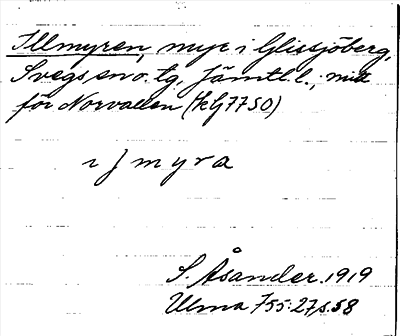 Illmyren, myr i Glissjöberg,
Svegs sn o. tg, Jämtl. l.;
för Norvallen (kG7750)
myra
S. Åsander. 1919
Ulma 755:27, s. 58